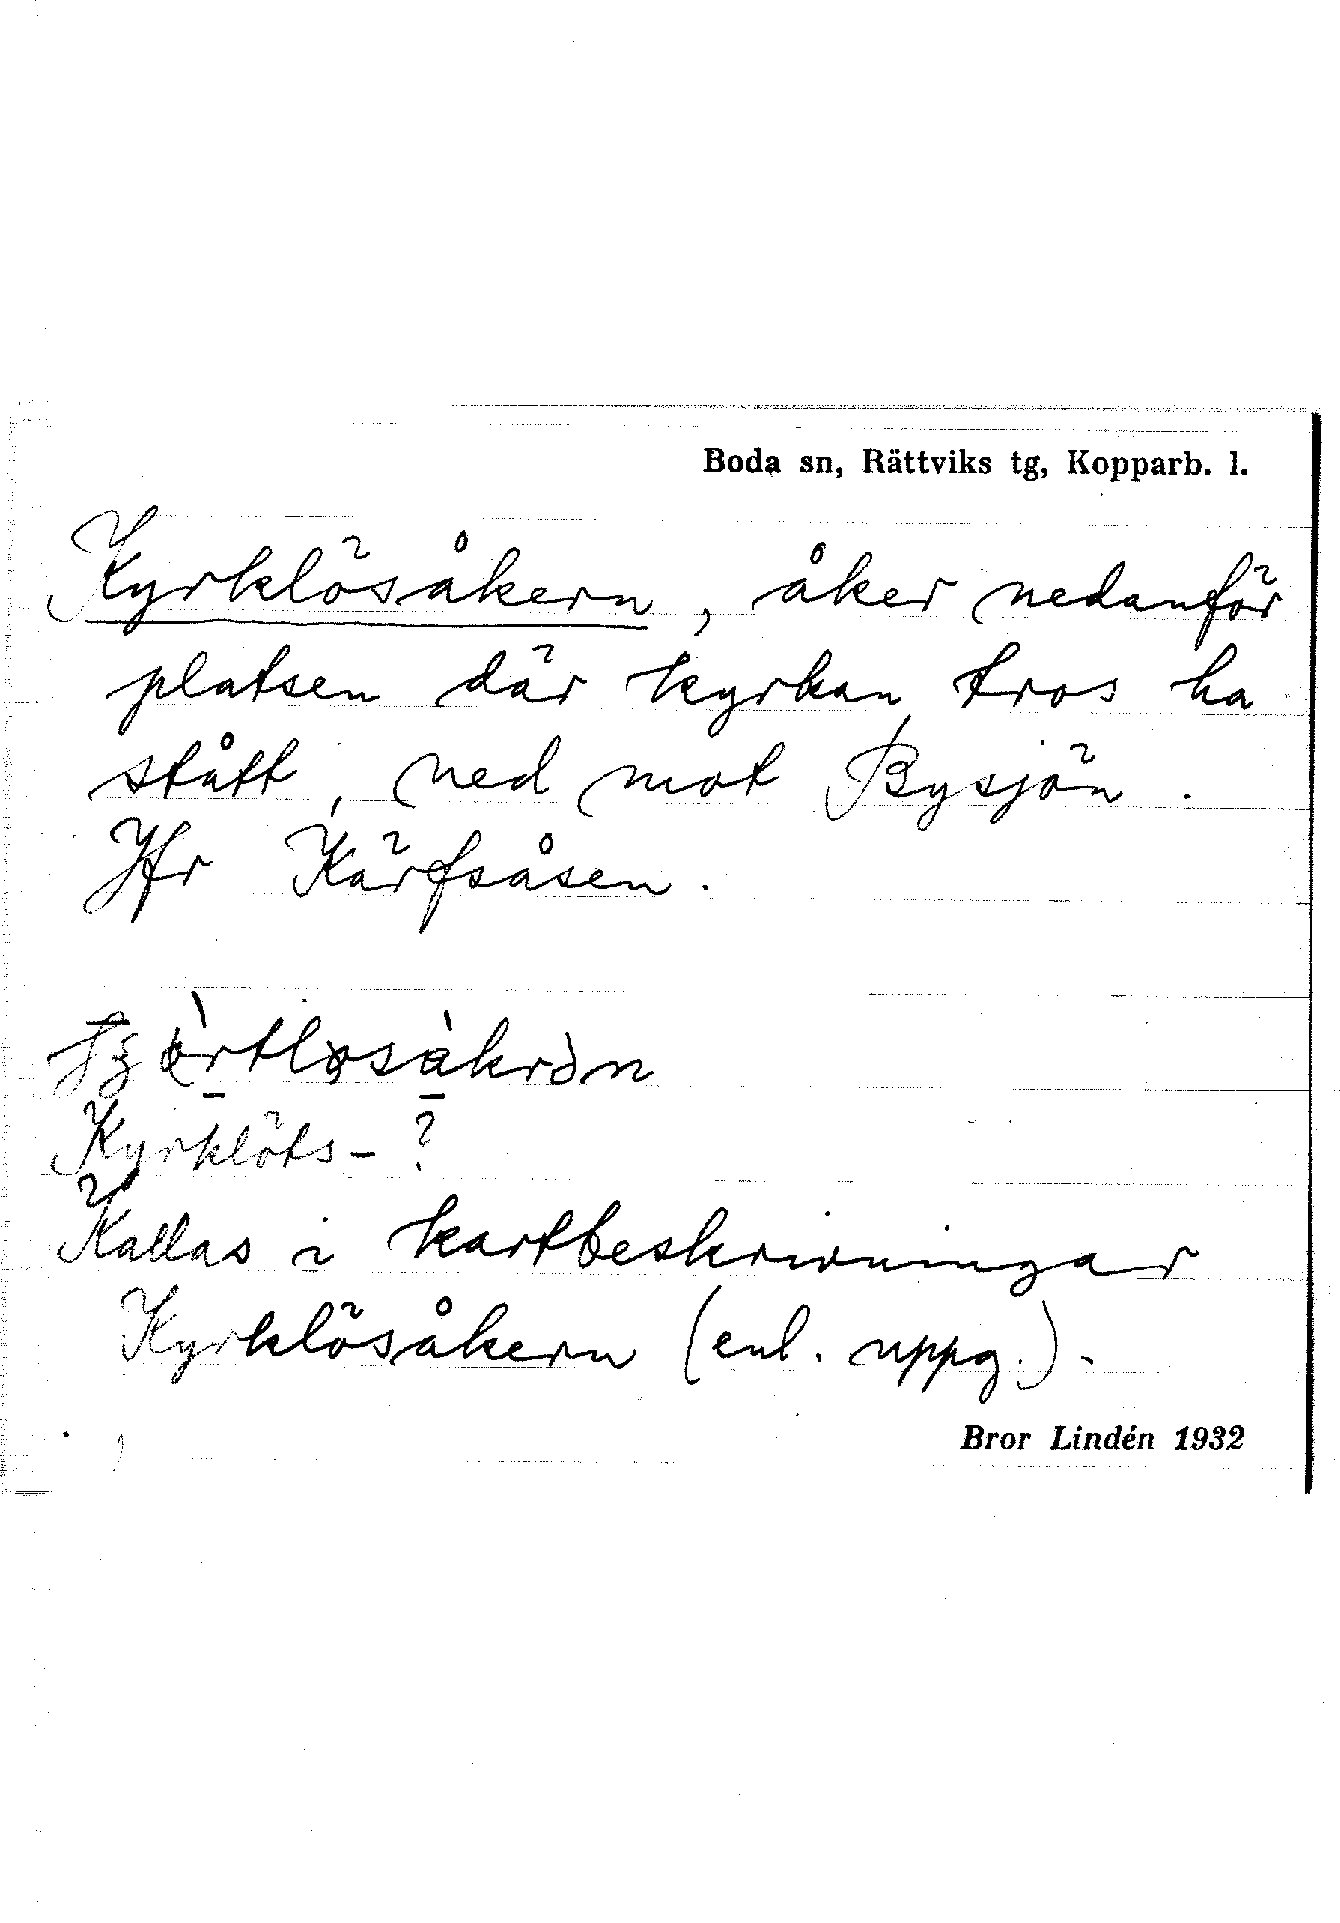 Boda sn, Rättviks tg, Kopparb. l.
Kyrklösåkern, åker nedanför
platsen där kyrkan tros ha
stått, ned mot Bysjön.
Jfr Kärfsåsen.
Kyrklöts- ?
Kallas i kartbeskrivningar
Kyrklösåkern (enl. uppg.).
Bror Lindén 1932